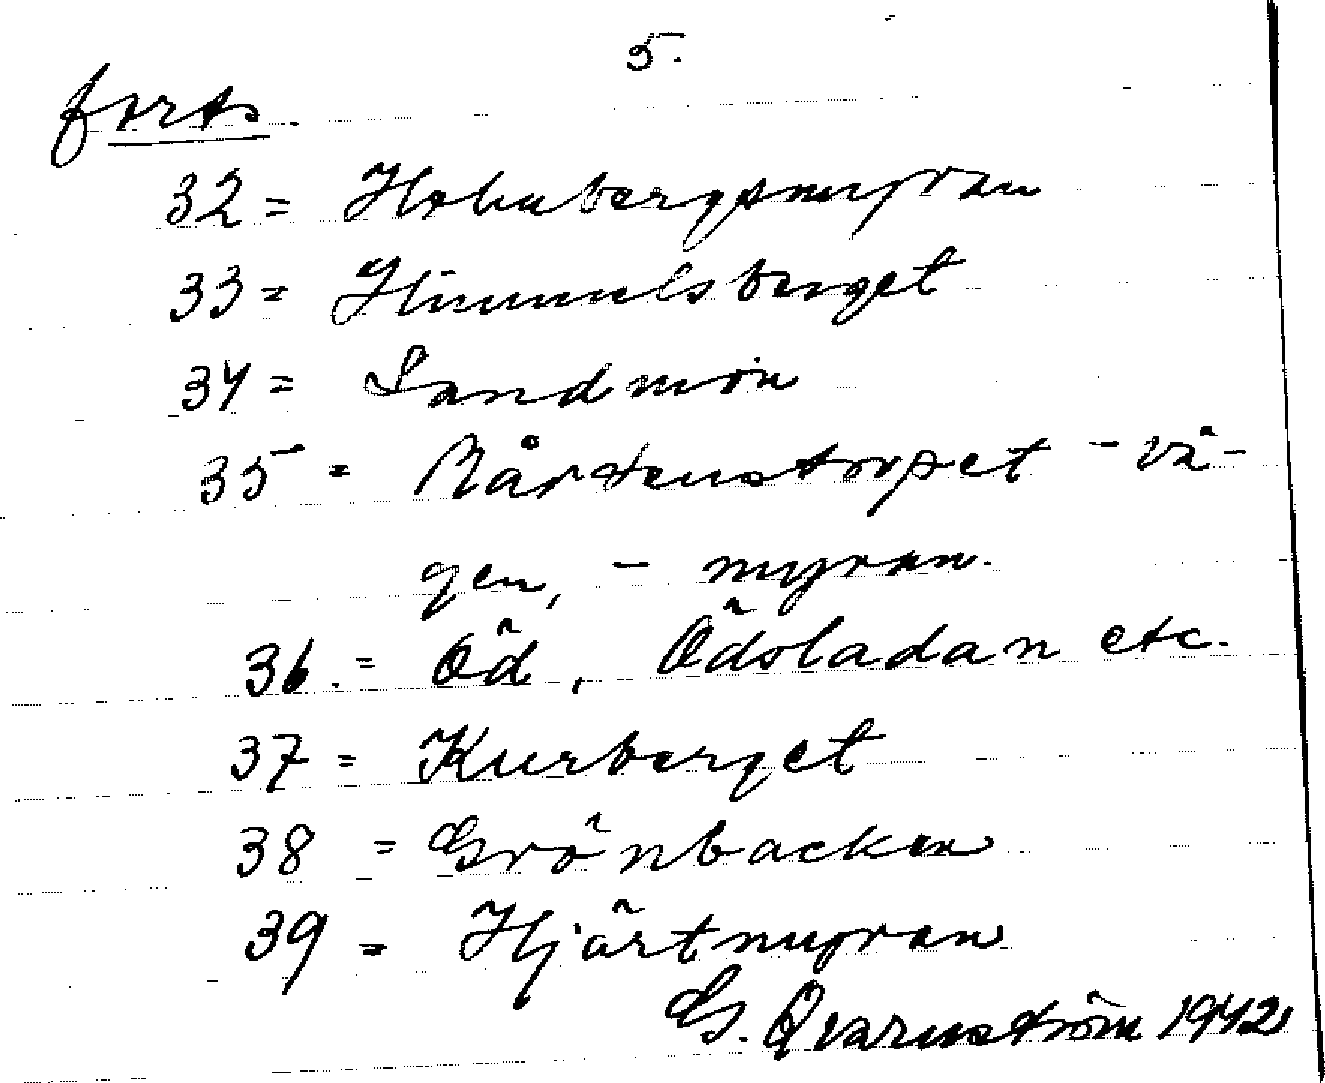 5.
forts.
32 = Holmbergsmyran
33 = Himmelsberget
34 = Sandmon
35 = Mårtenstorpet - vä-
gen, - myran.
36. = Öd, Ödsladan etc.
37 = Kurberget
38 = Grönbacken
39 = Hjärtmyran
G. Qvarnström 1942